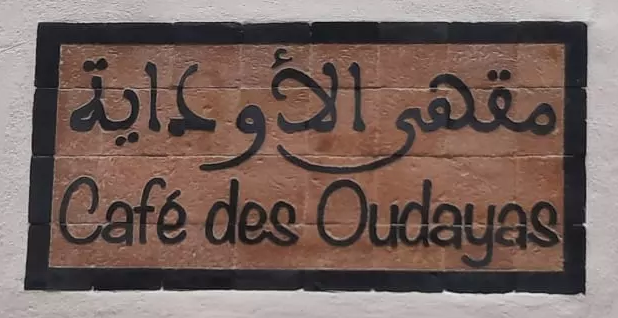 مقهى الأوداية
Café des Oudayas